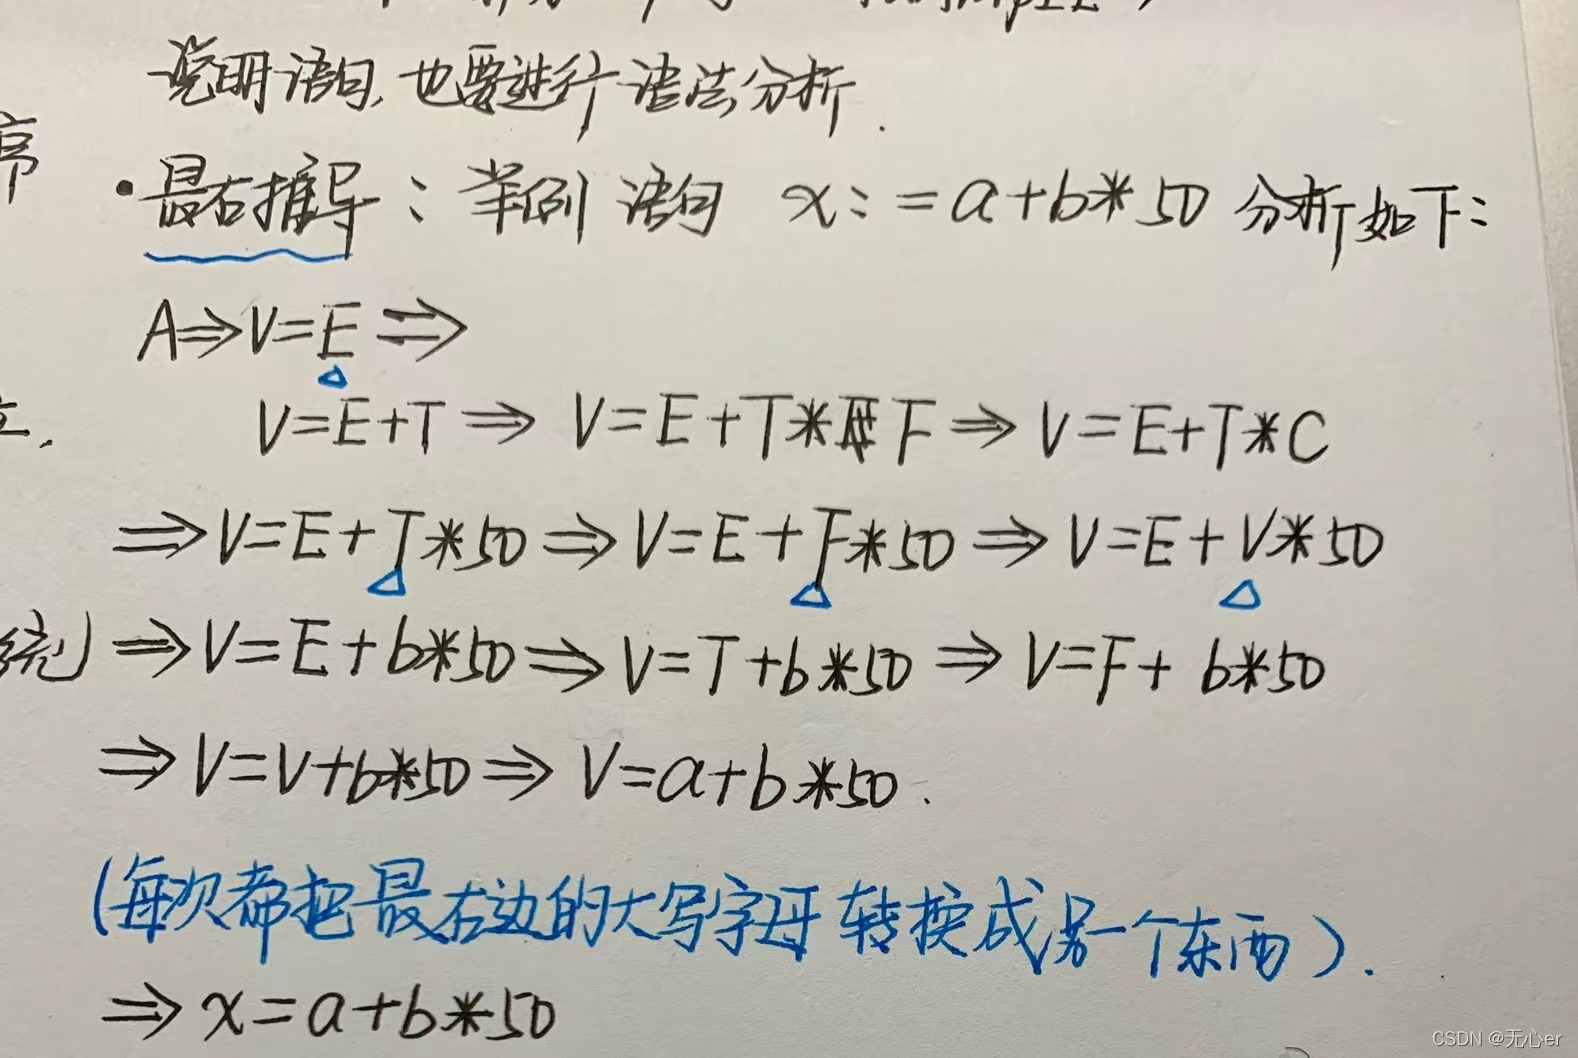 说明语句,也要进行语法分析.
序
·最右推导:举例 语句 x:=a+b*50 分析如下:
A⇒V=E⇒
V=E+T⇒V=E+T*F⇒V=E+T*C
⇒V=E+T*50⇒V=E+F*50⇒V=E+V*50
统) ⇒V=E+b*50⇒V=T+b*50⇒V=F+b*50
⇒V=V+b*50⇒V=a+b*50.
(每次都把最右边的大写字母转换成另一个东西).
⇒x=a+b*50
CSDN @无心er